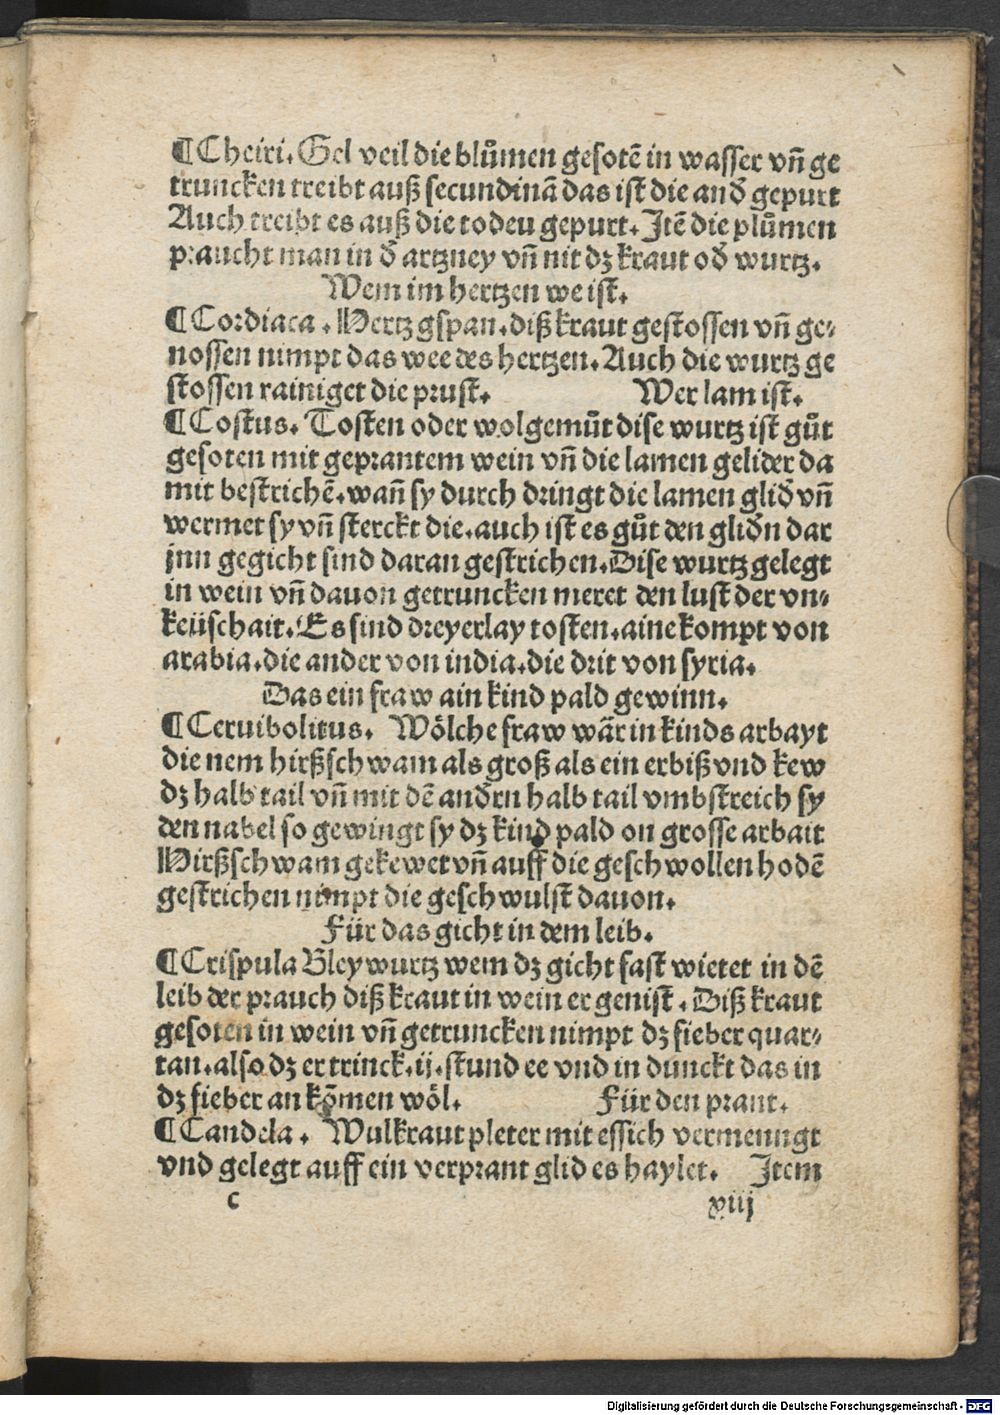 ¶Cheiri. Gel veil die blůmen gesotē in wasser vn̄ ge
truncken treibt auß secundinā das ist die and̛ gepurt
Auch treibt es auß die todeu gepurt. Itē die plůmen
praucht man in d̛ artzney vn̄ nit dz kraut od̛ wurtz.
Wem im hertzen we ist.
¶Cordiaca. Hertz gspan. diß kraut gestossen vn̄ ge⸗
nossen nimpt das wee des hertzen. Auch die wurtz ge
stossen rainiget die prust. Wer lam ist.
¶Costus. Tosten oder wolgemůt dise wurtz ist gůt
gesoten mit geprantem wein vn̄ die lamen gelider da
mit bestrichē. wan̄ sy durch dringt die lamen glid̛ vn̄
wermet sy vn̄ sterckt die. auch ist es gůt den glid̛n dar
jnn gegicht sind daran gestrichen. Dise wurtz gelegt
in wein vn̄ dauon getruncken meret den lust der vn⸗
keüschait. Es sind dreyerlay tosten. aine kompt von
arabia. die ander von india. die drit von syria.
Das ein fraw ain kind pald gewinn.
¶Ceruibolitus. Wölche fraw wār in kinds arbayt
die nem hirßschwam als groß als ein erbiß vnd kew
dz halb tail vn̄ mit dē and̛rn halb tail vmbstreich sy
den nabel so gewingt sy dz kind pald on grosse arbait
Hirßschwam gekewet vn̄ auff die geschwollen hodē
gestrichen nimpt die geschwulst dauon.
Für das gicht in dem leib.
¶Crispula Bleywurtz wem dz gicht fast wietet in dē
leib der prauch diß kraut in wein er genist. Diß kraut
gesoten in wein vn̄ getruncken nimpt dz fieber quar⸗
tan. also dz er trinck. ij. stund ee vnd in dunckt das in
dz fieber an kōmen wöl. Für den prant.
¶Candela. Wulkraut pleter mit essich vermenngt
vnd gelegt auff ein verprant glid es haylet. Item
c xiij
Digitalisierung gefördert durch die Deutsche Forschungsgemeinschaft - DFG